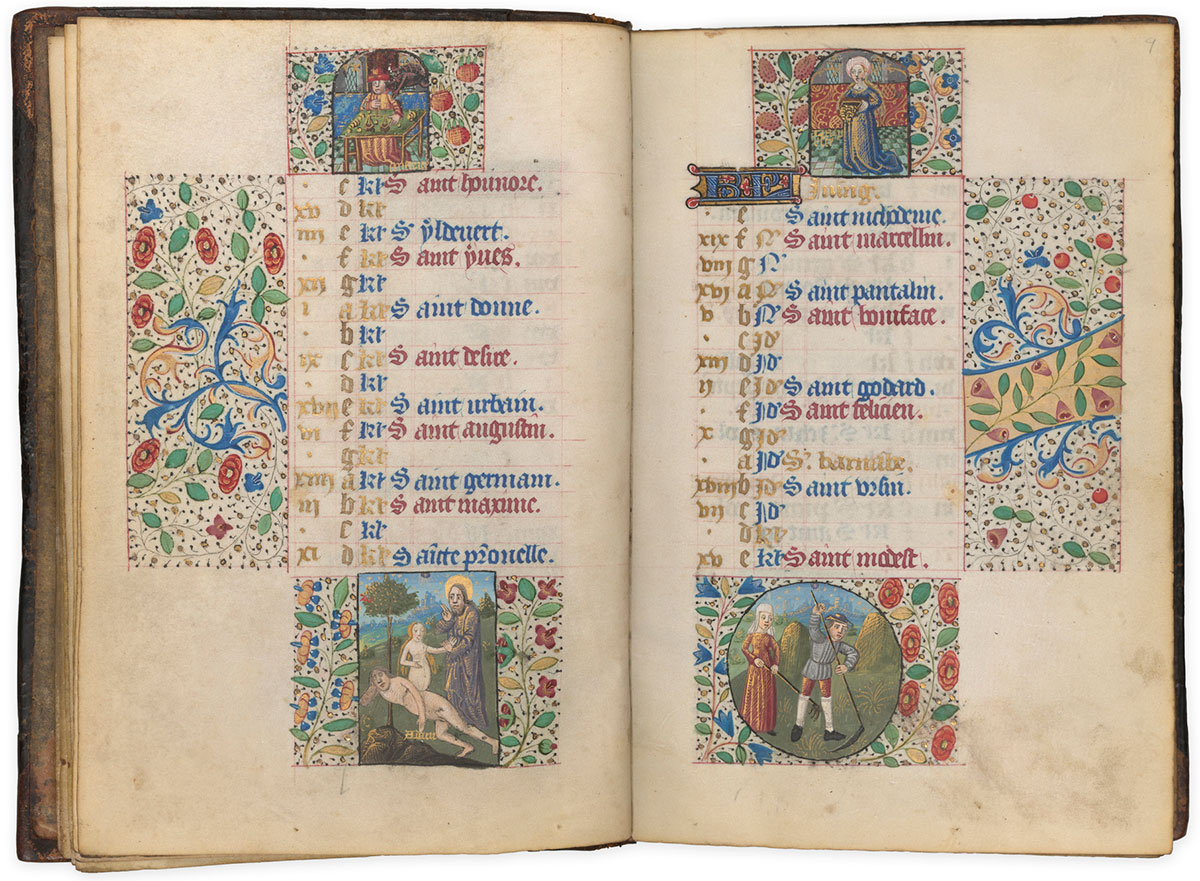 c kł Saint honnore.
xv d kł
iiij e kł S⁹ yldevert.
f kł Saint yves.
xij g kł
i a kł Saint donne.
b kł
ix c kł Saint desire.
d kł
xvij e kł Saint urbain.
vi f kł Saint augustin.
g kł
xiiij a kł Saint germain.
iij b kł Saint maxime.
c kł
xi d kł Saincte p̃ronelle.
9
KL Juing.
e Saint nichodeme.
xix f N⁹ Saint marcellin.
viij g N⁹
xvi a N⁹ Saint pantalin.
v b N⁹ Saint boniface.
c Id⁹
xiij d Id⁹
ij e Id⁹ Saint godard.
f Id⁹ Saint felicien.
x g Id⁹
a Id⁹ S⁹ barnabe.
xviij b Id⁹ Saint ursin.
vij c Id⁹
d kł
xv e kł Saint modest.